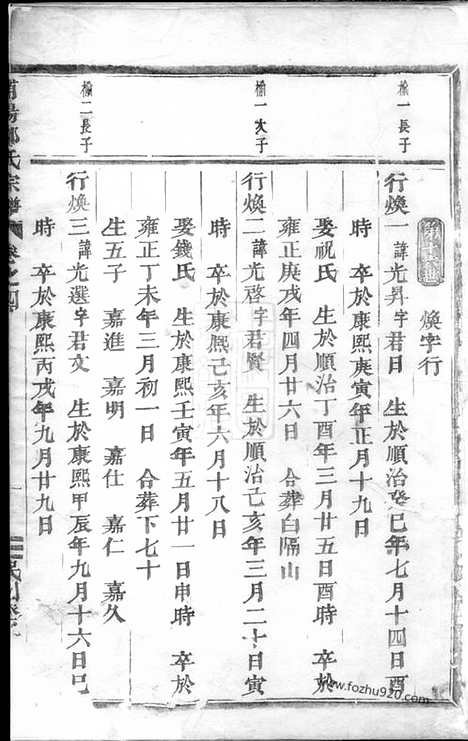 煥字行
榆一長子
行煥一諱光昇字君日 生於順治癸巳年七月十四日酉
時 卒於康熙庚寅年正月十九日
娶祝氏 生於順治丁酉年三月廿五日酉時 卒於
雍正庚戌年四月廿六日 合葬白隔山
榆一次子
行煥二諱光啓字君賢 生於順治己亥年三月二十日寅
時 卒於康熙己亥年六月十八日
娶錢氏 生於康熙壬寅年五月廿一日申時 卒於
雍正丁未年三月初一日 合葬下七十
生五子 嘉進 嘉明 嘉仕 嘉仁 嘉久
榆二長子
行煥三諱光選字君文 生於康熙甲辰年九月十六日巳
時 卒於康熙丙戌年九月廿九日
氏宗譜
www.fozhu920.com